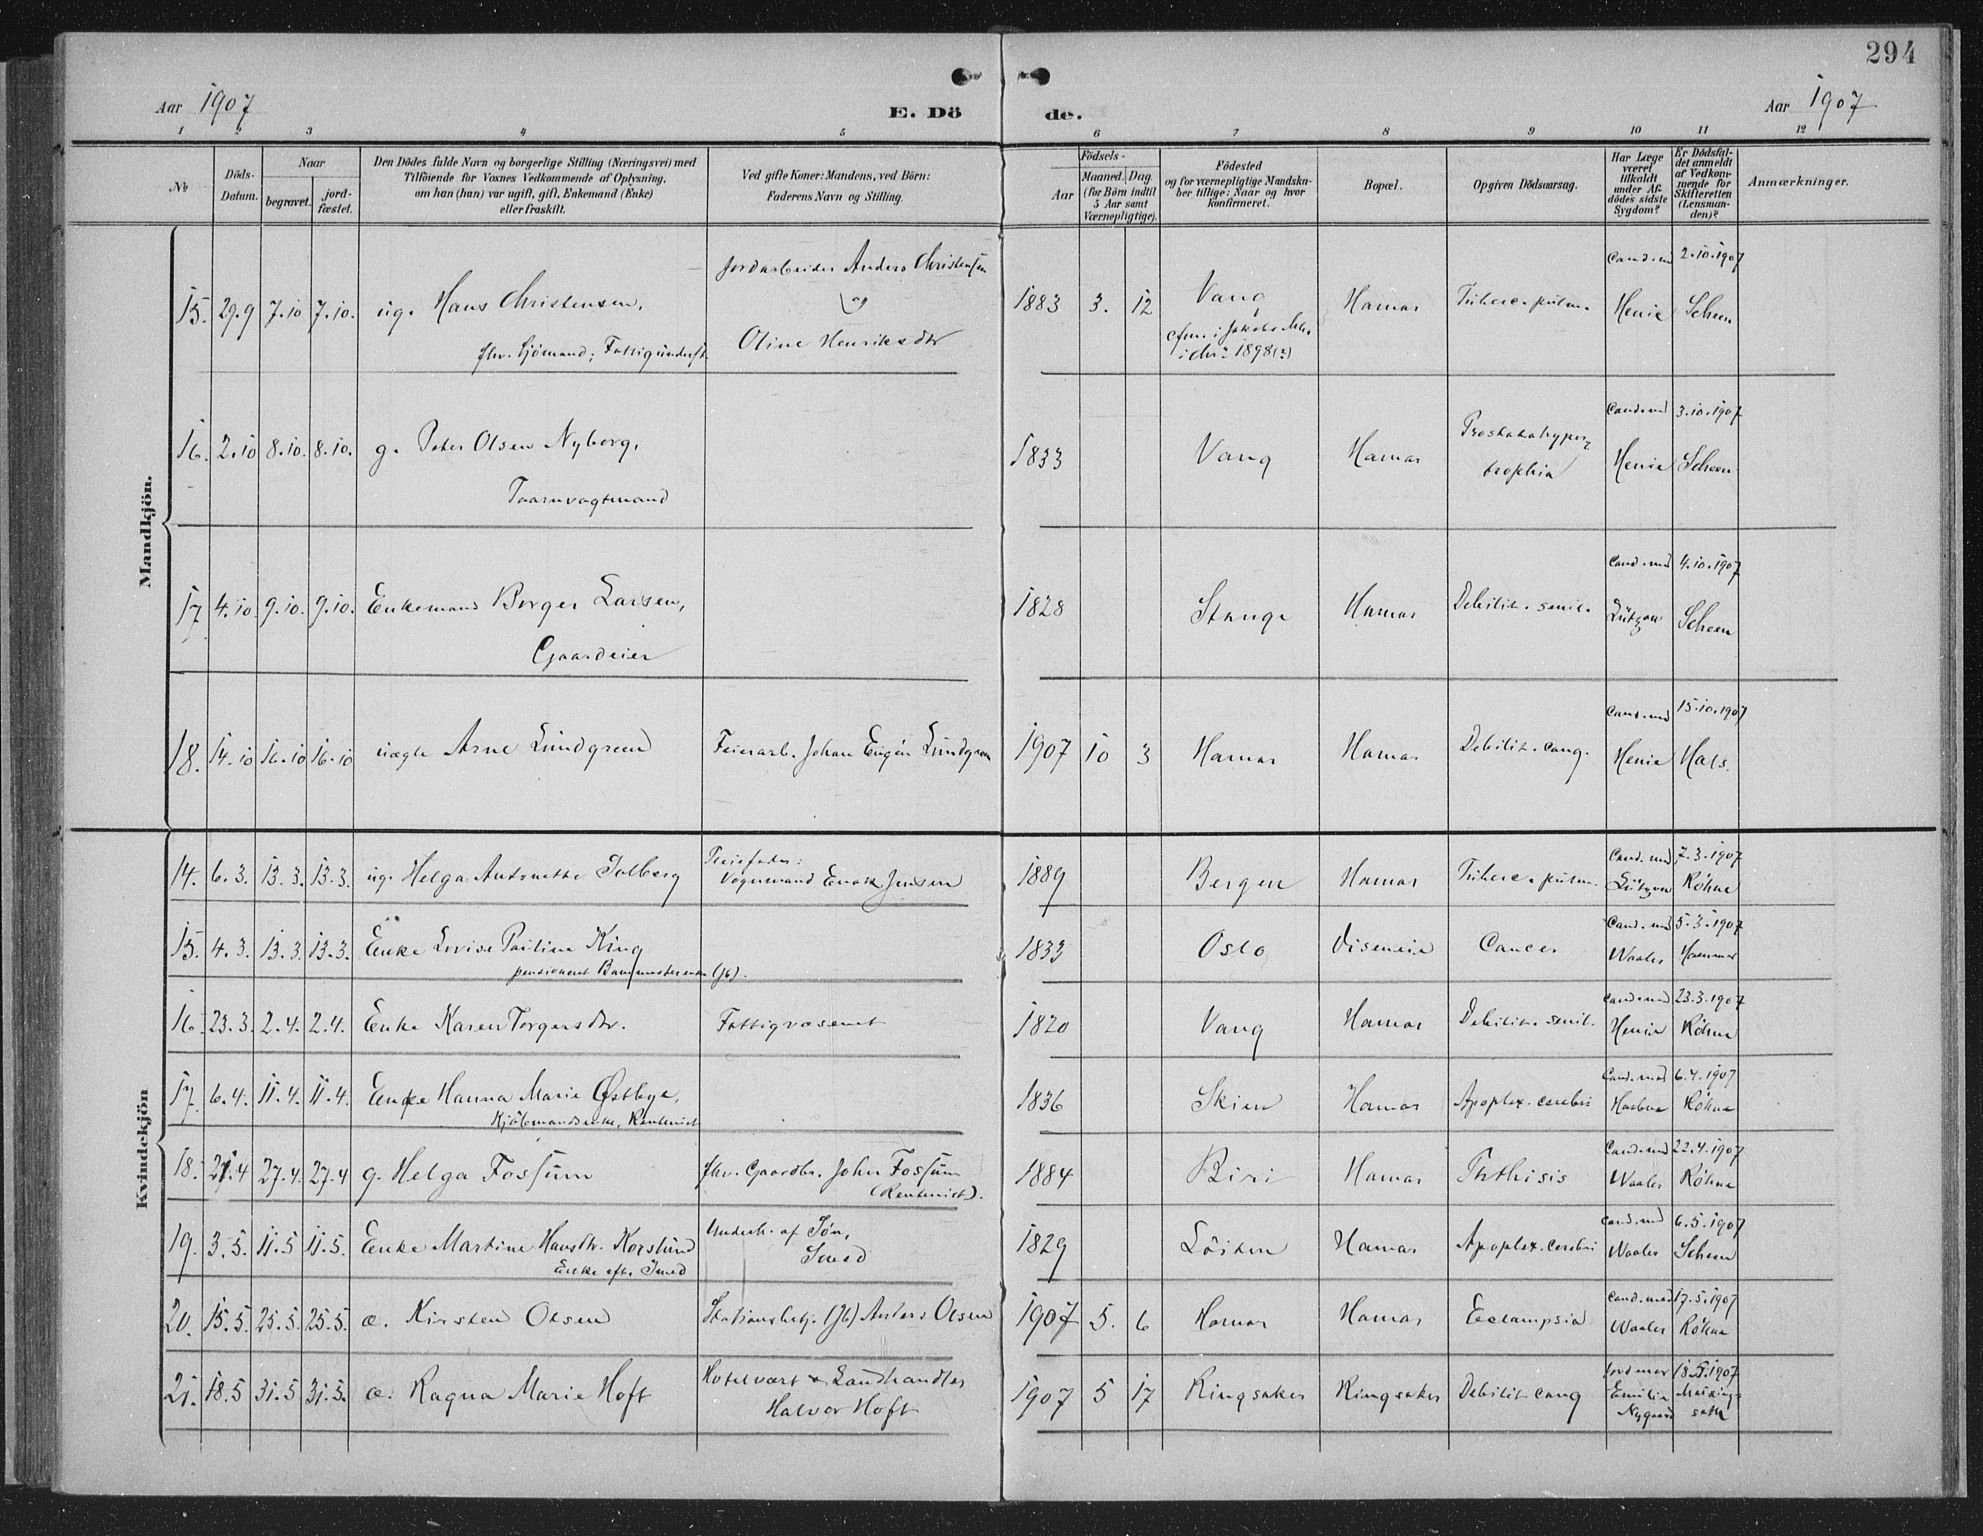 294
Aar 1907
E. Dö
de.
Aar 1907
1 2 3 4 5 6 7 8 9 10 11 12
No
Döds-
Datum.
Naar
begravet.
jord-
fæstet.
Den Dödes fulde Navn og borgerlige Stilling (Næringsvei) med
Tilföiende for Voxnes Vedkommende af Oplysning,
om han (hun) var ugift, gift, Enkemand (Enke)
eller fraskilt.
Ved gifte Koner: Mandens, ved Börn:
Faderens Navn og Stilling.
Födsels-
Aar
Maaned. Dag
(for Börn indtil
5 Aar samt
Værnepligtige).
Födested
og for værnepligtige Mandska-
ber tillige: Naar og hvor
konfirmeret.
Bopæl.
Opgiven Dödsaarsag.
Har Læge
været
tilkaldt
under Af-
dödes sidste
Sygdom?
Er Dödsfal-
det anmeldt
af Vedkom-
mende for
Skifteretten
(Lensman-
den)?
Anmærkninger.
Mandkjön.
Jordarbeider Anders Christensen
Cand. med 2.10.1907
15. 29.9 7.10 7.10. ug. Hans Christensen, og 1883 3. 12 Vang Hamar Tuberc. pulm. Henie Scheen
fhv. Sjömand; Fattigunderst. Oline Henriksdtr
i chr. 1898 (?)
Cand. med 3.10.1907
16. 2.10 8.10. 8.10. g. Peter Olsen Nyborg, 1833 Vang Hamar Prostatahyper-
trophia Henie Scheen
Taarnvagtmand
Cand. med 4.10.1907
17 4.10 9.10. 9.10. Enkemand Borger Larsen, 1828 Stange Hamar Debilit. senil. Lützow Scheen
Gaardeier
Cand. med 15.10.1907
18. 14.10 16.10 16.10 uægte Arne Lundgreen Feierarb. Johan Eugén Lundgreen 1907 10 3 Hamar Hamar Debilit. cong. Henie Hals.
Kvindekjön
Pleiefader: Cand. med 7.3.1907
14. 6.3. 13.3. 13.3. ug. Helga Antonette Solberg Vognmand Enok Jensen 1889 Bergen Hamar Tuberc. pulm. Lützow Röhne
Cand. med 5.3.1907
15. 4.3. 13.3. 13.3. Enke Lovise Pauline King 1833 Oslo Disenveien Cancer Waaler
pensioneret Banemesterenke (Jb).
Cand. med 23.3.1907
16. 23.3. 2.4. 2.4. Enke Karen Torgersdtr. Fattigvæsenet 1820 Vang Hamar Debilit. senil. Henie Röhne
Cand. med 6.4.1907
17. 6.4. 11.4. 11.4. Enke Hanna Marie Østbye, 1836 Skien Hamar Apoplex. cerebri Röhne
Kjöbmandsenke, Rentenist
Cand. med 22.4.1907
18. 21.4 27.4. 27.4 g. Helga Fossum fhv. Gaardbr. John Fossum 1884 Biri Hamar Phthisis Waaler Röhne
(Rentenist).
Cand. med 6.5.1907
19. 3.5. 11.5 11.5. Enke Martine Hansdtr. Korslund Underh. af Sön, 1829 Löiten Hamar Apoplex. cerebri Waaler Scheen
Enke efter Smed Smed
Cand. med 17.5.1907
20. 15.5. 25.5. 25.5. æ. Kirsten Olsen Stationsbetj. (Jb) Anders Olsen 1907 5. 6 Hamar Hamar Eclampsia Waaler Röhne
Hotelvært & Landhandler Jordmor 18.5.1907
21. 18.5 31.5 31.5. æ. Ragna Marie Hoft Halvor Hoft 1907 5 17 Ringsaker Ringsaker Debilit. cong Emilie
Nygaard